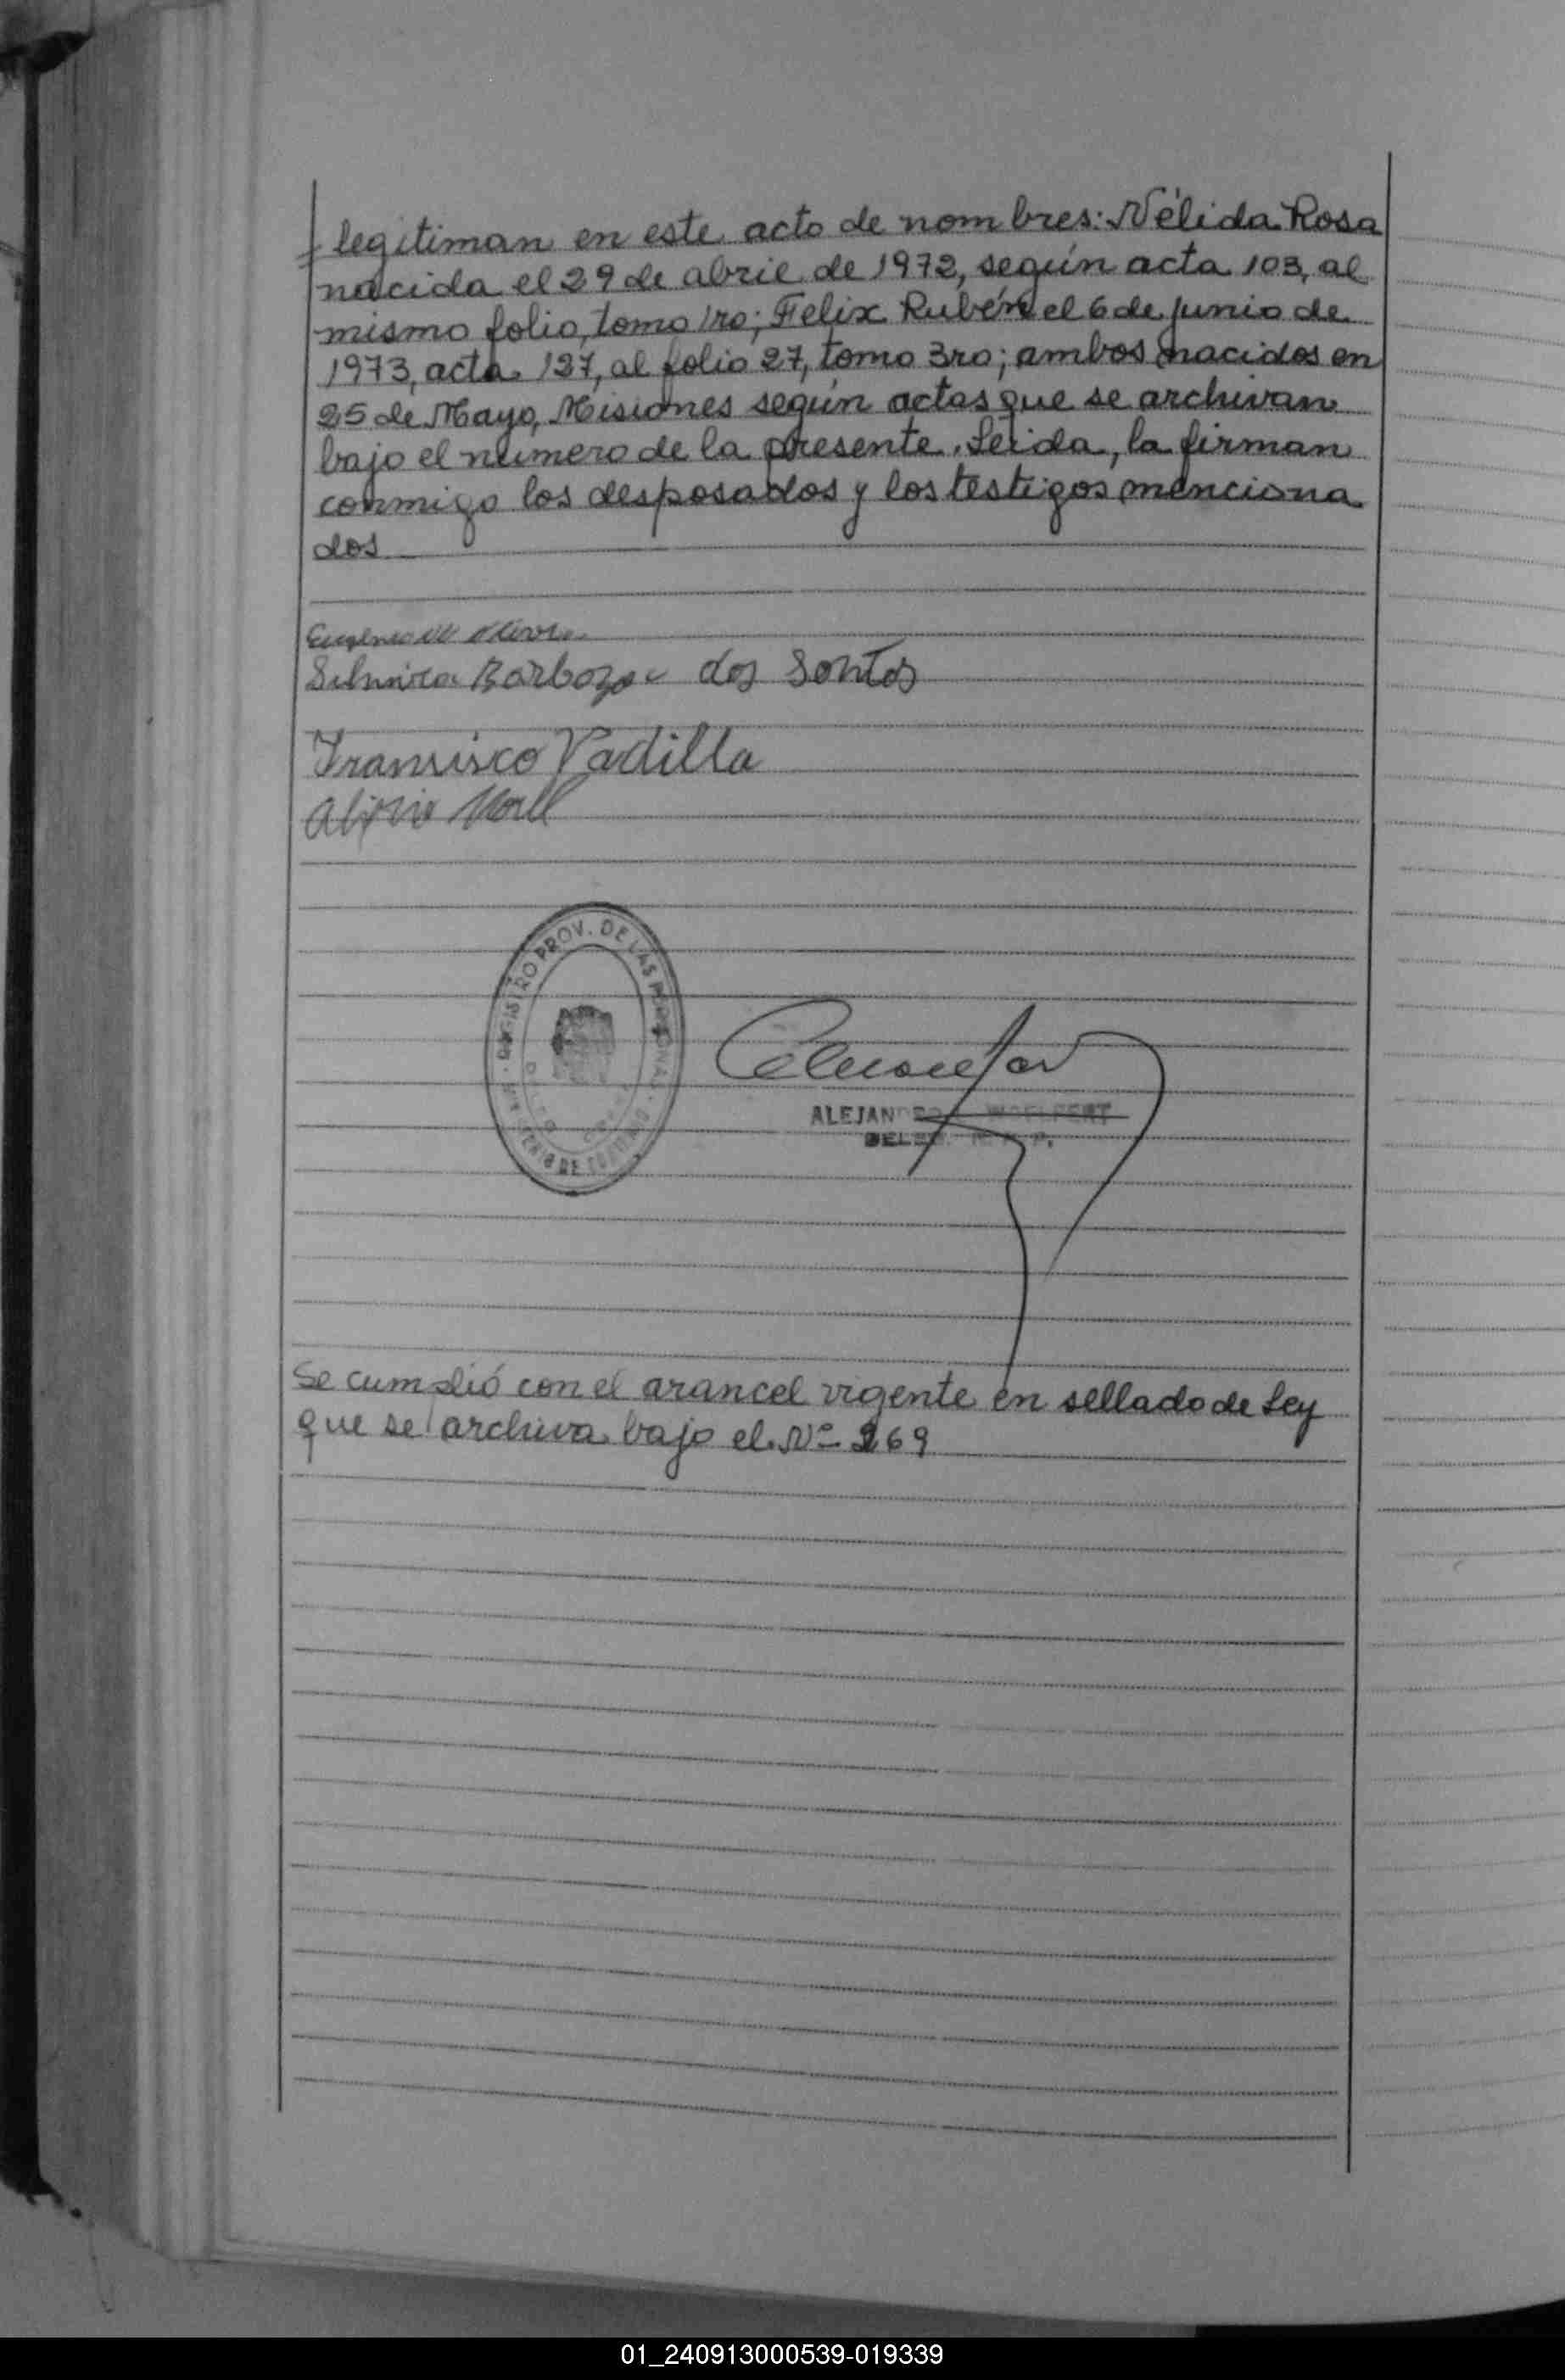 legitiman en este acto de nombres: Nélida Rosa
nacida el 29 de abril de 1972, según acta 103, al
mismo folio, tomo 1ro; Felix Rubén el 6 de junio de
1973, acta 127, al folio 27, tomo 3ro; ambos nacidos en
25 de Mayo, Misiones según actas que se archivan
bajo el número de la presente. Leída, la firman
conmigo los desposados y los testigos menciona
dos
Barboza dos Santos
Fransisco Padilla
REGISTRO PROV. DE LAS PERSONAS
ALEJAN
Se cumplió con el arancel vigente en sellado de Ley
que se archiva bajo el Nº 269
01_240913000539-019339